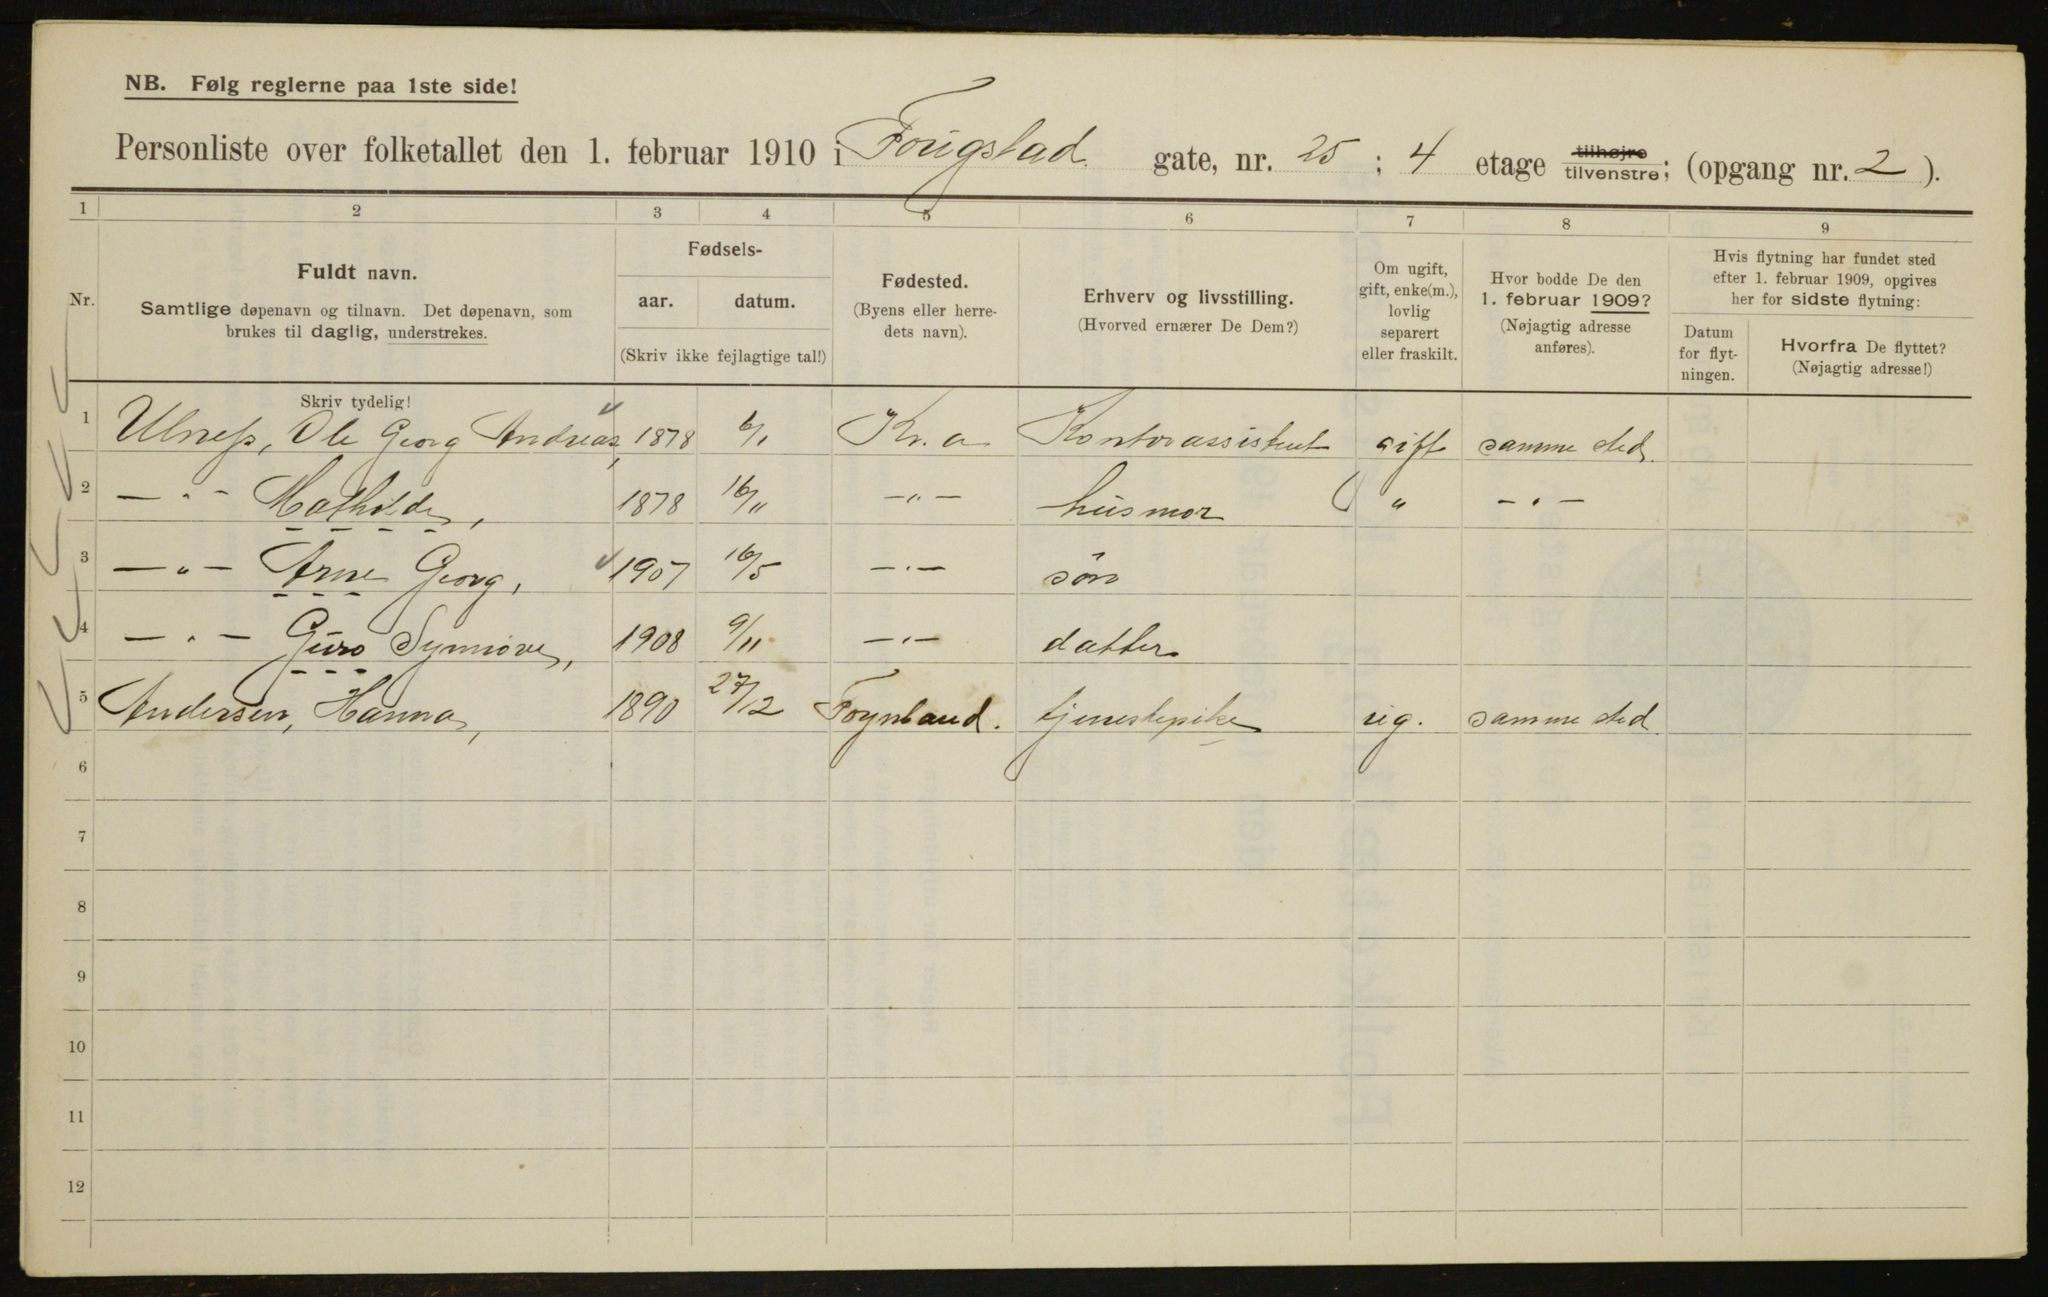 NB. Følg reglerne paa 1ste side!
Personliste over folketallet den 1. februar 1910 i Fougstad gate, nr. 25 ; 4 etage tilhøjre tilvenstre; (opgang nr. 2 ).
1 2 3 4 5 6 7 8 9
Nr.
Fuldt navn.
Samtlige døpenavn og tilnavn. Det døpenavn, som
brukes til daglig, understrekes.
Fødsels-
aar. datum.
(Skriv ikke fejlagtige tal!)
Fødested.
(Byens eller herre-
dets navn).
Erhverv og livsstilling.
(Hvorved ernærer De Dem?)
Om ugift,
gift, enke(m.),
lovlig
separert
eller fraskilt.
Hvor bodde De den
1. februar 1909?
(Nøjagtig adresse
anføres).
Hvis flytning har fundet sted
efter 1. februar 1909, opgives
her for sidste flytning:
Datum
for flyt-
ningen.
Hvorfra De flyttet?
(Nøjagtig adresse!)
Skriv tydelig!
1 Ulness, Ole Georg Andreas, 1878 6/1 Kr.a Kontorassistent gift samme sted.
2 — " — Mathilde, 1878 16/11 — " — husmor " — " —
3 — " — Arne Georg, 1907 16/5 — " — sön
4 — " — Guro Synnöve, 1908 9/11 — " — datter
5 Andersen, Hanna, 1890 27/12 Foynland. tjenestepike ug. samme sted
6
7
8
9
10
11
12